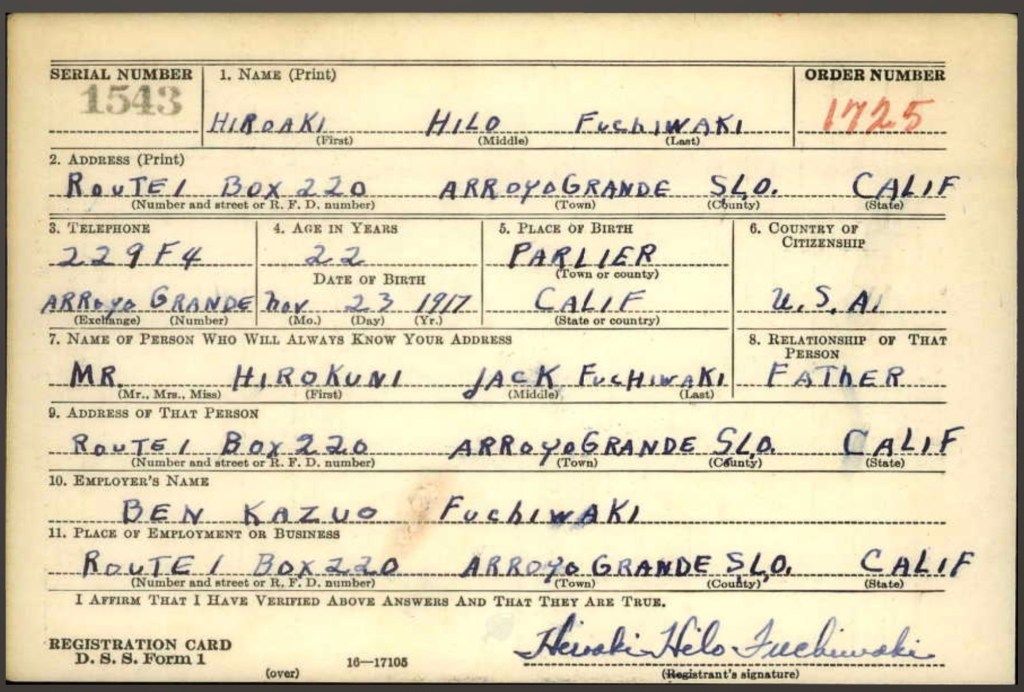 SERIAL NUMBER 1. NAME (Print) ORDER NUMBER
1543
HIROAKI HILO FUCHIWAKI 1725
(First) (Middle) (Last)
2. ADDRESS (Print)
ROUTE 1 BOX 220 ARROYO GRANDE S.L.O. CALIF
(Number and street or R. F. D. number) (Town) (County) (State)
3. TELEPHONE 4. AGE IN YEARS 5. PLACE OF BIRTH 6. COUNTRY OF CITIZENSHIP
229F4 22 PARLIER
(Town or county)
DATE OF BIRTH
ARROYO GRANDE Nov 23 1917 CALIF U.S.A.
(Exchange) (Number) (Mo.) (Day) (Yr.) (State or country)
7. NAME OF PERSON WHO WILL ALWAYS KNOW YOUR ADDRESS 8. RELATIONSHIP OF THAT PERSON
MR. HIROKUNI JACK FUCHIWAKI FATHER
(Mr., Mrs., Miss) (First) (Middle) (Last)
9. ADDRESS OF THAT PERSON
ROUTE 1 BOX 220 ARROYO GRANDE S.L.O. CALIF
(Number and street or R. F. D. number) (Town) (County) (State)
10. EMPLOYER'S NAME
BEN KAZUO FUCHIWAKI
11. PLACE OF EMPLOYMENT OR BUSINESS
ROUTE 1 BOX 220 ARROYO GRANDE S.L.O. CALIF
(Number and street or R. F. D. number) (Town) (County) (State)
I AFFIRM THAT I HAVE VERIFIED ABOVE ANSWERS AND THAT THEY ARE TRUE.
REGISTRATION CARD Hiroaki Hilo Fuchiwaki
D. S. S. Form 1
(over) 16—17105 (Registrant's signature)